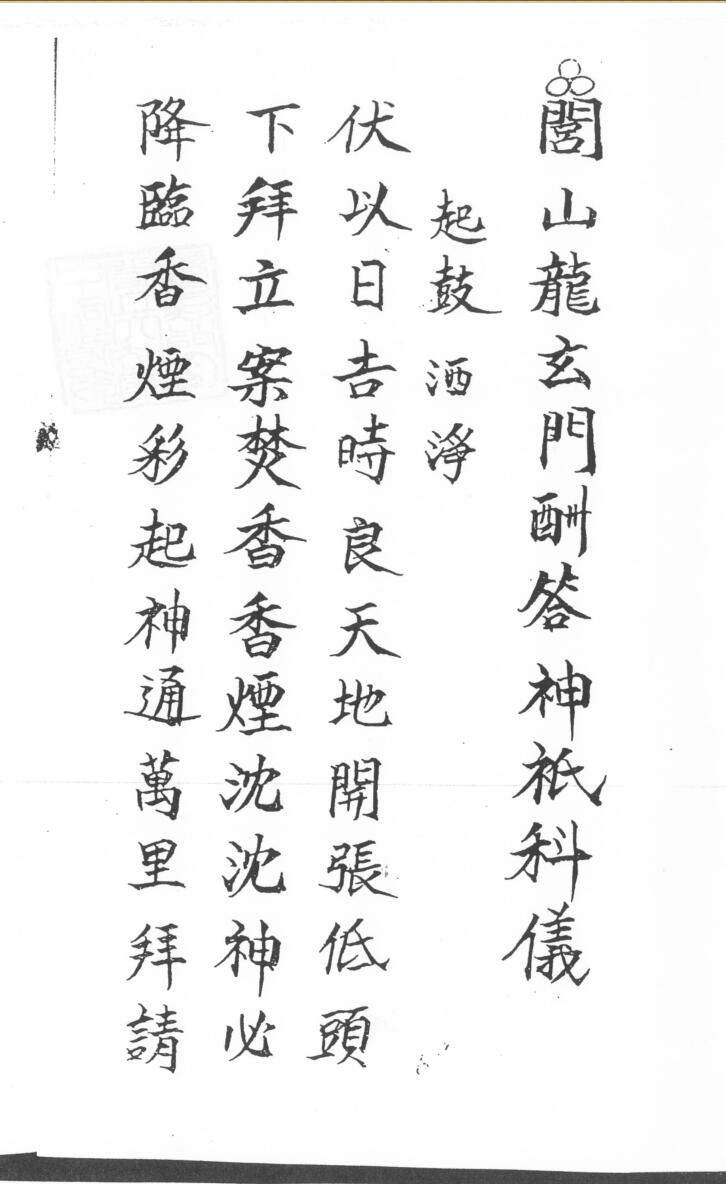 閭山龍玄門酬答神祇科儀
起鼓 洒淨
伏以日吉時良天地開張低頭
下拜立案焚香香煙沈沈神必
降臨香煙彩起神通萬里拜請